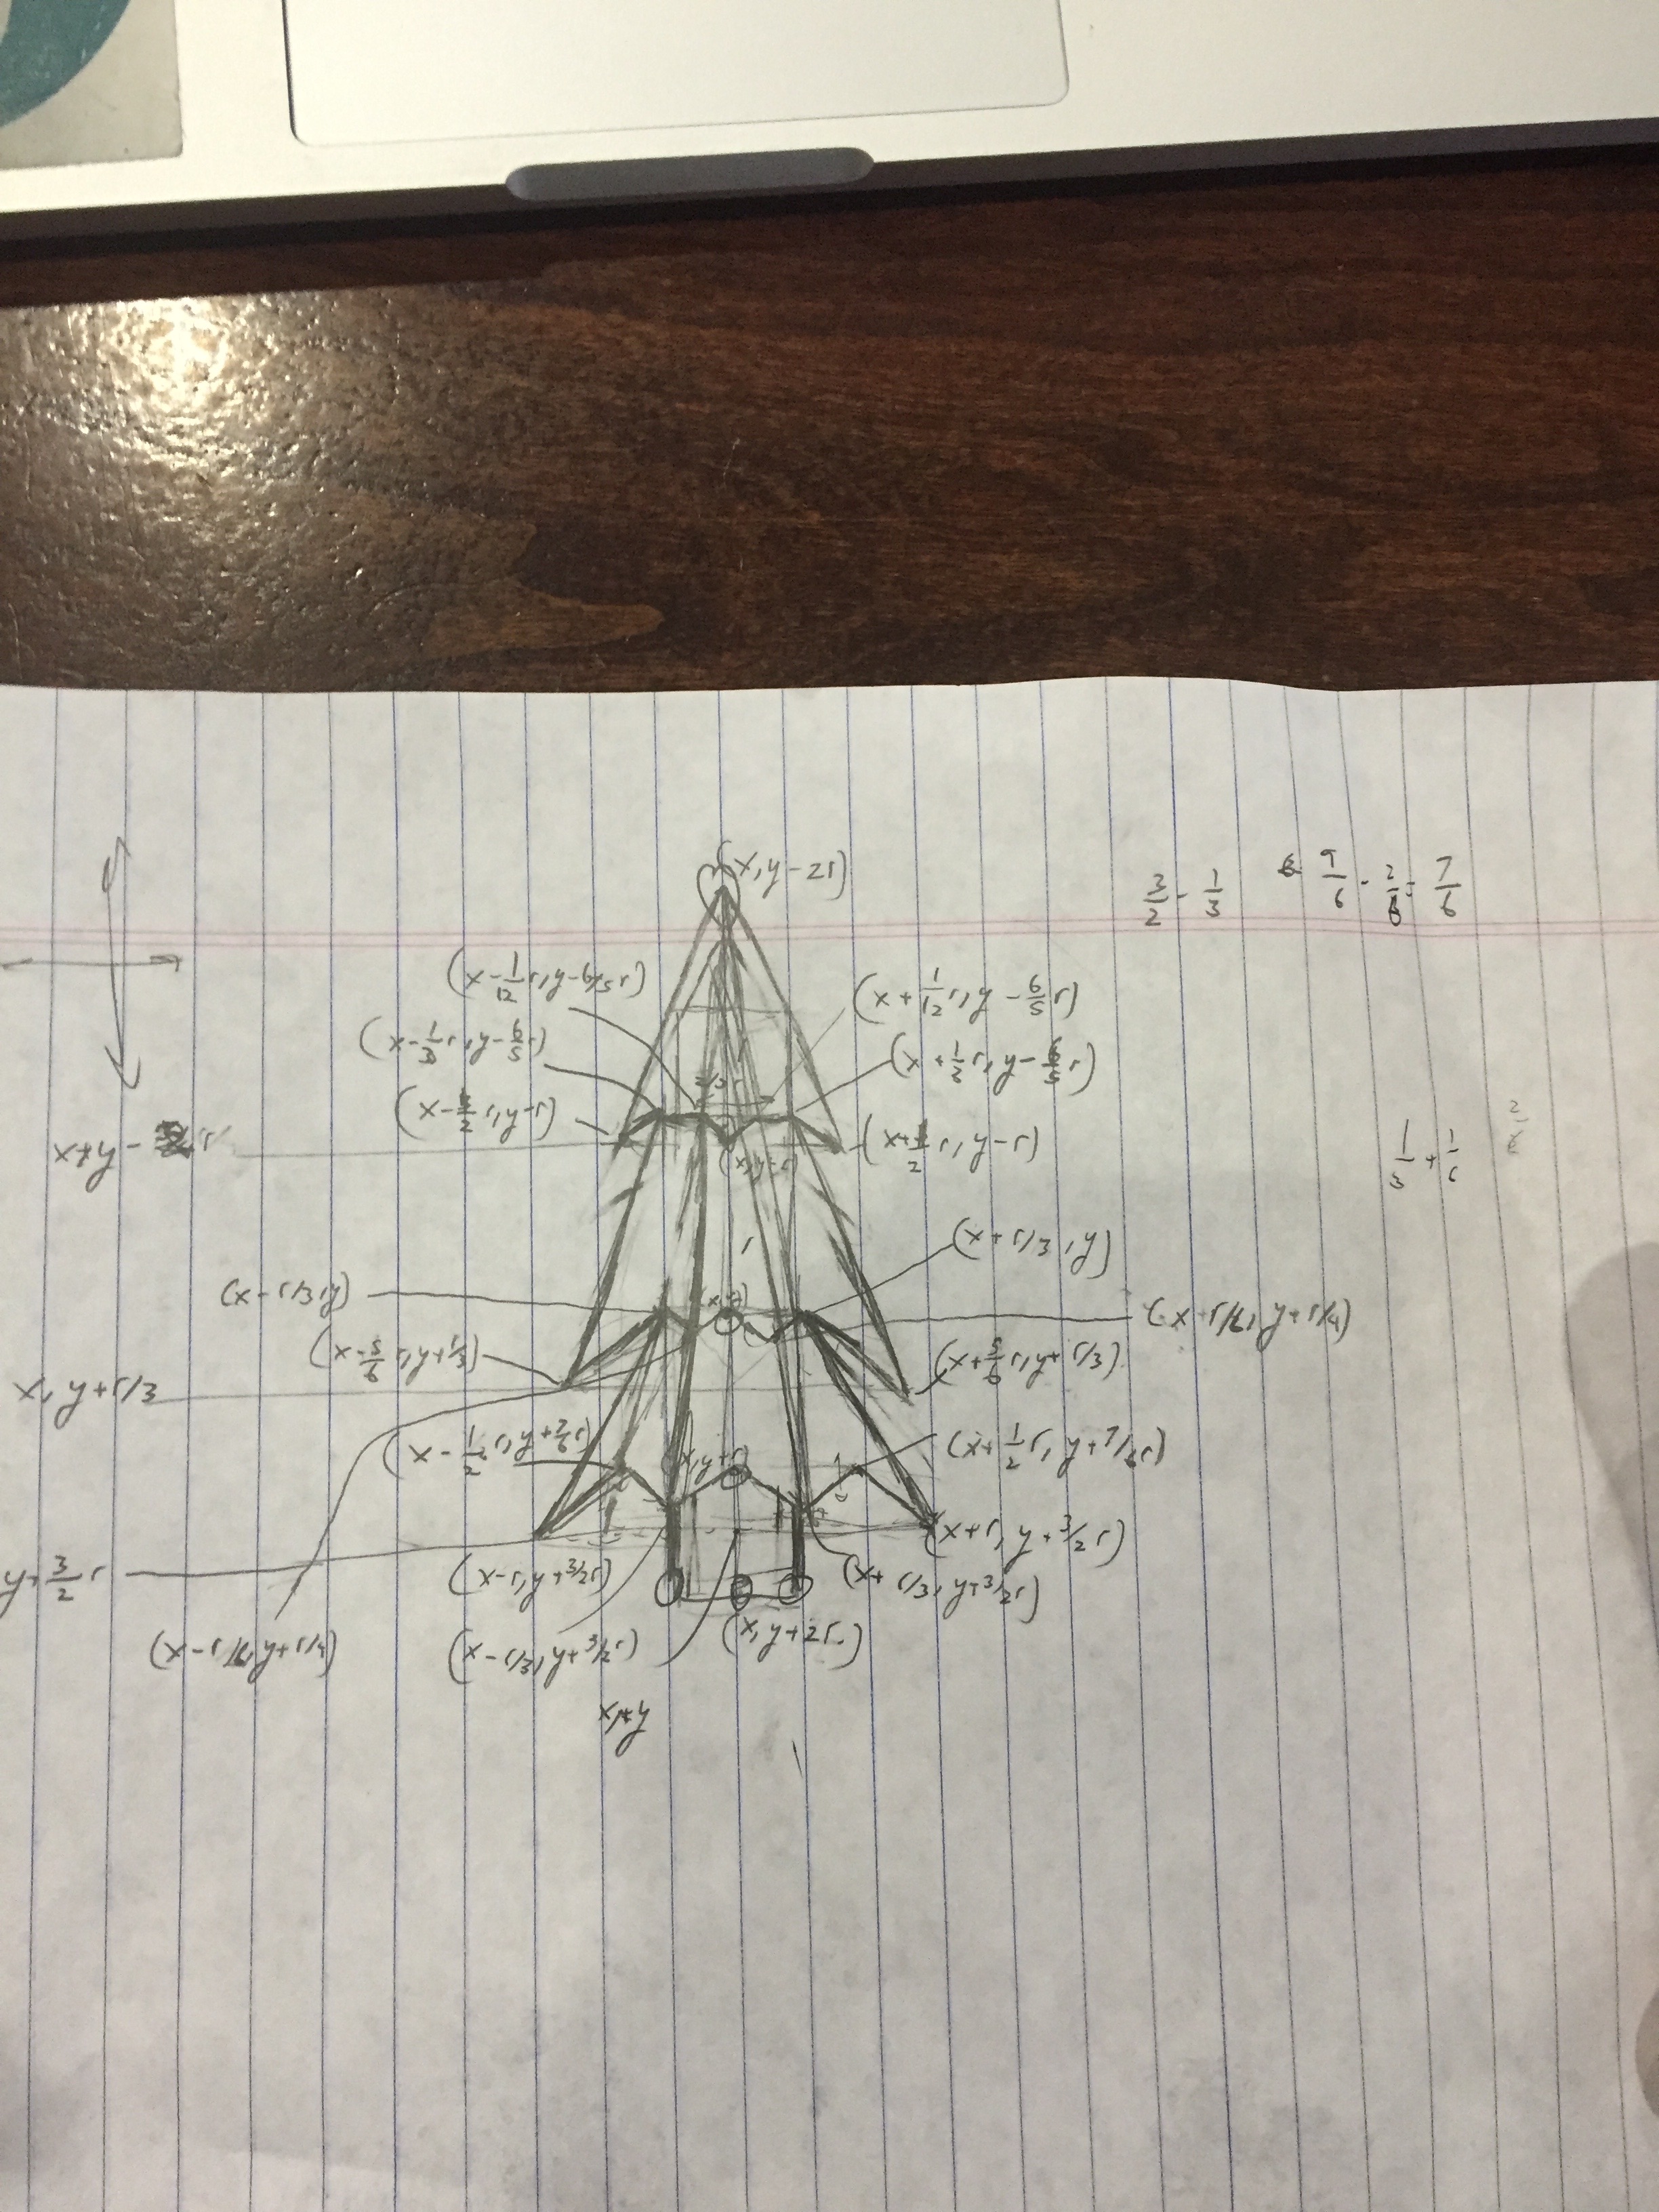 (x, y - 2r)
3/2 - 1/3
9/6 - 2/6 = 7/6
(x - 1/12 r, y - 6/5 r)
(x + 1/12 r, y - 6/5 r)
(x - 1/3 r, y - 6/5 r)
(x + 1/3 r, y - 6/5 r)
(x - 1/2 r, y - r)
(x + 1/2 r, y - r)
(x, y - r)
1/3 + 1/6
(x + r/3, y)
(x - r/3, y)
(x, y)
(x + r/6, y + r/4)
(x - 5/6 r, y + r/3)
(x + 5/6 r, y + r/3)
x, y + r/3
(x - 1/2 r, y + 7/6 r)
(x, y + r)
(x + 1/2 r, y + 7/6 r)
(x + r, y + 3/2 r)
y + 3/2 r
(x - r, y + 3/2 r)
(x + r/3, y + 3/2 r)
(x - r/6, y + r/4)
(x - r/3, y + 3/2 r)
(x, y + 2r)
x, y